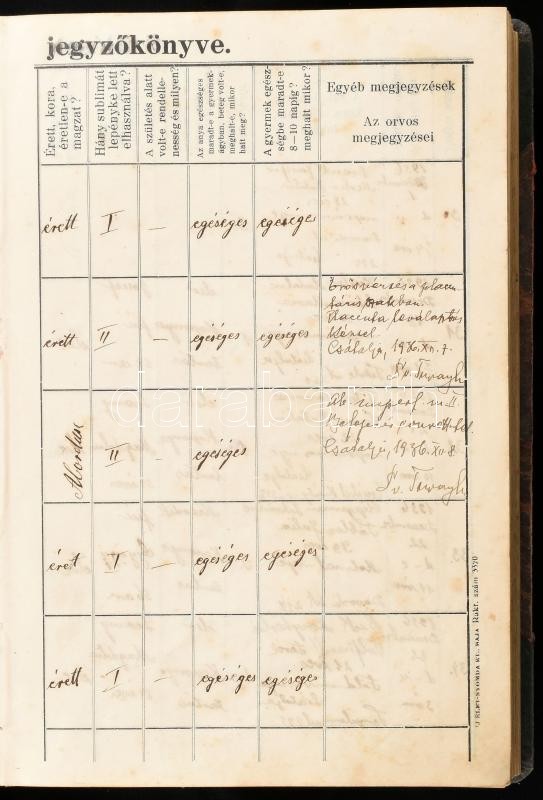 jegyzőkönyve.
Érett, kora,
éretlen-e a
magzat?
Hány sublimát
lepényke lett
elhasználva?
A születés alatt
volt-e rendelle-
nesség és milyen?
Az anya egészséges
maradt-e a gyermek-
ágyban, beteg volt-e,
meghalt-e, mikor
halt meg?
A gyermek egész-
ségbe maradt-e
8—10 napig?
meghalt mikor?
Egyéb megjegyzések
Az orvos
megjegyzései
érett I — egéséges egeséges
érett II — egéséges egéséges
Erős vérzés a placen
táris szakban.
Placenta leválasztás
kézzel.
Csátalja, 1936.XII.7.
Dr. 
II egéséges
Ab. imperf. m. II.
Csátalja, 1936.XII.8.
Dr. 
éret I — egéséges egéséges
érett I — egéséges egéséges
ÚJ ÉLET-NYOMDA RT., BAJA Rakt. szám 3370
darabanth